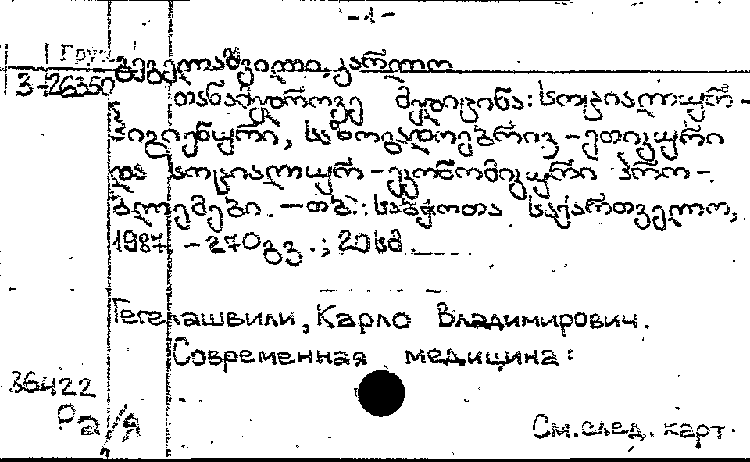 -1-
Груз
3-26350
გეგელაშვილი, კარლო
თანამედროვე მედიცინა: სოციალურ-
ჰიგიენური, საზოგადოებრივ-ეთიკური
და სოციალურ-ეკონომიკური პრო-
ბლემები. — თბ.: საბჭოთა საქართველო,
1987. - 270 გვ.; 20 სმ.
Гегелашвили, Карло Владимирович.
Современная медицина:
36422
Ра/Я
См. след. карт.